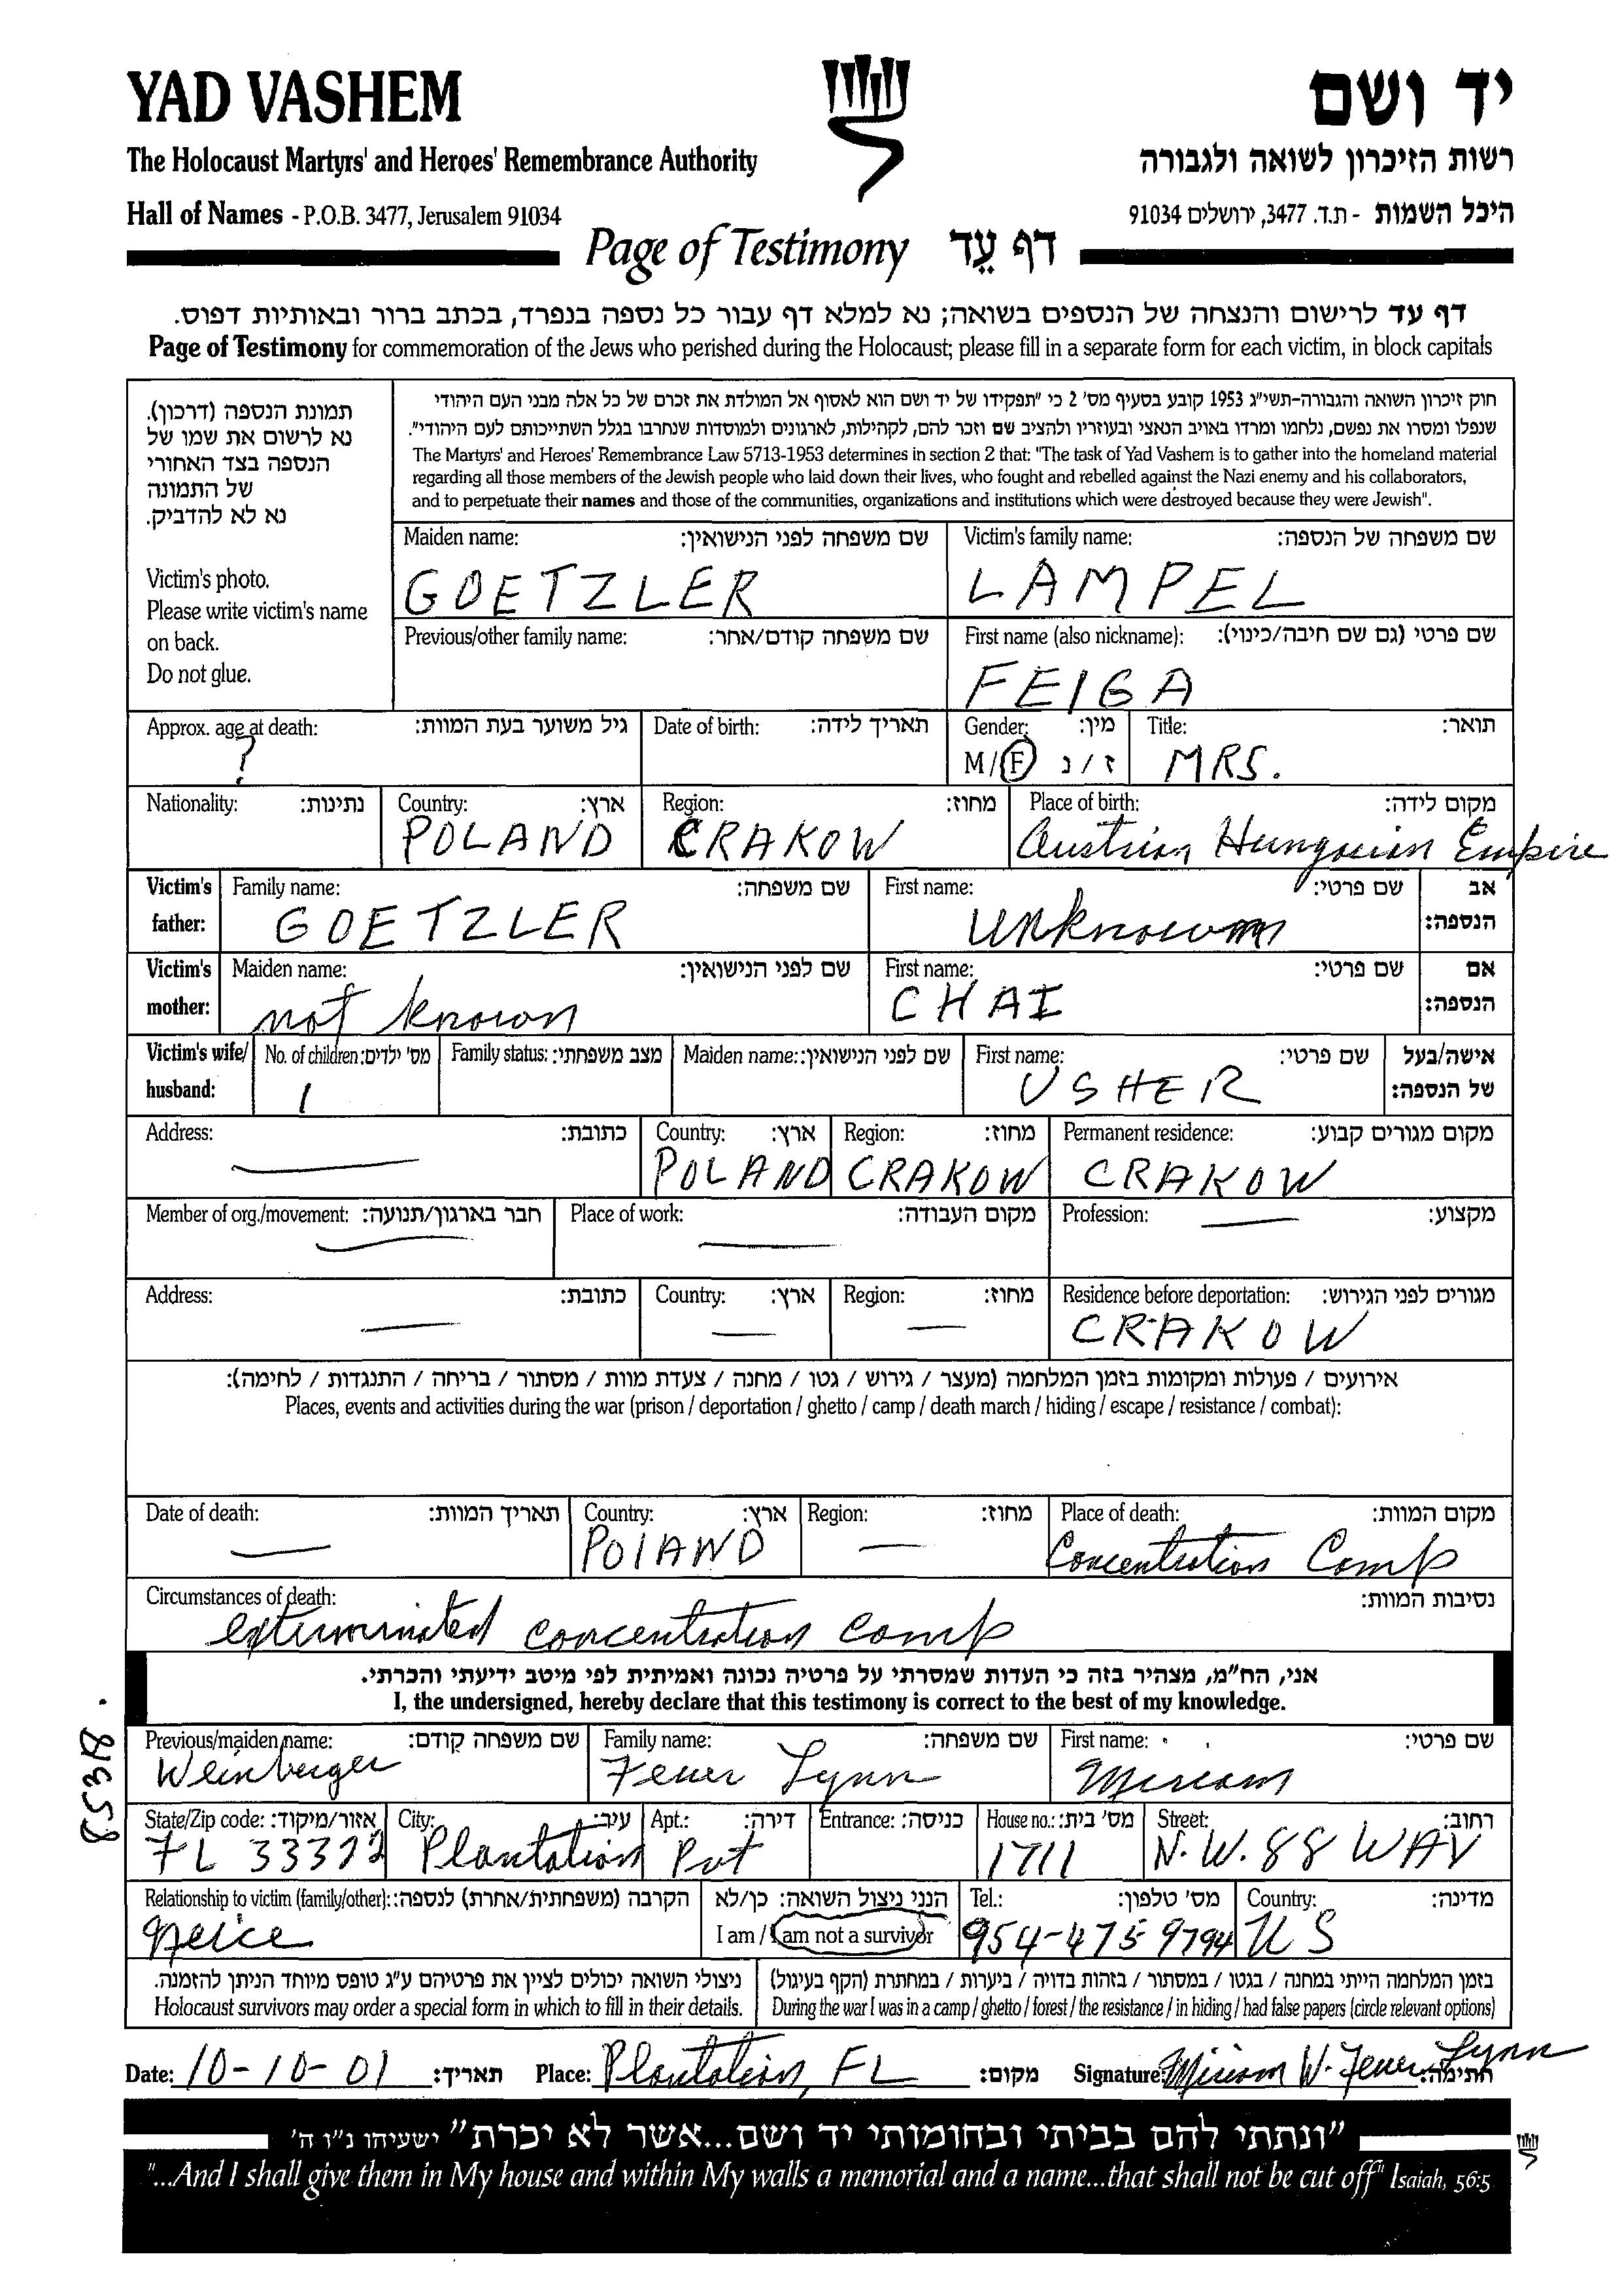 YAD VASHEM
יד ושם
The Holocaust Martyrs' and Heroes' Remembrance Authority
רשות הזיכרון לשואה ולגבורה
Hall of Names - P.O.B. 3477, Jerusalem 91034
היכל השמות - ת.ד. 3477, ירושלים 91034
Page of Testimony דף עֵד
דף עד לרישום והנצחה של הנספים בשואה; נא למלא דף עבור כל נספה בנפרד, בכתב ברור ובאותיות דפוס.
Page of Testimony for commemoration of the Jews who perished during the Holocaust; please fill in a separate form for each victim, in block capitals
תמונת הנספה (דרכון).
נא לרשום את שמו של
הנספה בצד האחורי
של התמונה
נא לא להדביק.
Victim's photo.
Please write victim's name
on back.
Do not glue.
חוק זיכרון השואה והגבורה-תשי"ג 1953 קובע בסעיף מס' 2 כי "תפקידו של יד ושם הוא לאסוף אל המולדת את זכרם של כל אלה מבני העם היהודי
שנפלו ומסרו את נפשם, נלחמו ומרדו באויב הנאצי ובעוזריו ולהציב שם וזכר להם, לקהילות, לארגונים ולמוסדות שנחרבו בגלל השתייכותם לעם היהודי".
The Martyrs' and Heroes' Remembrance Law 5713-1953 determines in section 2 that: "The task of Yad Vashem is to gather into the homeland material
regarding all those members of the Jewish people who laid down their lives, who fought and rebelled against the Nazi enemy and his collaborators,
and to perpetuate their names and those of the communities, organizations and institutions which were destroyed because they were Jewish".
Maiden name: שם משפחה לפני הנישואין: Victim's family name: שם משפחה של הנספה:
GOETZLER LAMPEL
Previous/other family name: שם משפחה קודם/אחר: First name (also nickname): שם פרטי (גם שם חיבה/כינוי):
FEIGA
Approx. age at death: גיל משוער בעת המוות: Date of birth: תאריך לידה: Gender: מין: Title: תואר:
? M/F ז/נ MRS.
Nationality: נתינות: Country: ארץ: Region: מחוז: Place of birth: מקום לידה:
POLAND CRAKOW Austrian Hungarian Empire
Victim's father: Family name: שם משפחה: First name: שם פרטי: אב הנספה:
GOETZLER unknown
Victim's mother: Maiden name: שם לפני הנישואין: First name: שם פרטי: אם הנספה:
not known CHAI
Victim's wife/husband: No. of children: מס' ילדים: Family status: מצב משפחתי: Maiden name: שם לפני הנישואין: First name: שם פרטי: אישה/בעל של הנספה:
1 USHER
Address: כתובת: Country: ארץ: Region: מחוז: Permanent residence: מקום מגורים קבוע:
POLAND CRAKOW CRAKOW
Member of org./movement: חבר בארגון/תנועה: Place of work: מקום העבודה: Profession: מקצוע:
Address: כתובת: Country: ארץ: Region: מחוז: Residence before deportation: מגורים לפני הגירוש:
CRAKOW
אירועים / פעולות ומקומות בזמן המלחמה (מעצר / גירוש / גטו / מחנה / צעדת מוות / מסתור / בריחה / התנגדות / לחימה):
Places, events and activities during the war (prison / deportation / ghetto / camp / death march / hiding / escape / resistance / combat):
Date of death: תאריך המוות: Country: ארץ: Region: מחוז: Place of death: מקום המוות:
POlAND Concentration Camp
Circumstances of death: נסיבות המוות:
exterminated concentration camp
אני, הח"מ, מצהיר בזה כי העדות שמסרתי על פרטיה נכונה ואמיתית לפי מיטב ידיעתי והכרתי.
I, the undersigned, hereby declare that this testimony is correct to the best of my knowledge.
Previous/maiden name: שם משפחה קודם: Family name: שם משפחה: First name: שם פרטי:
Weinberger Feuer Lynn Miriam
State/Zip code: אזור/מיקוד: City: עיר: Apt.: דירה: Entrance: כניסה: House no.: מס' בית: Street: רחוב:
FL 33322 Plantation Pvt 1711 N.W. 88 WAV
Relationship to victim (family/other): הקרבה (משפחתית/אחרת) לנספה: הנני ניצול השואה: כן/לא Tel.: מס' טלפון: Country: מדינה:
Neice I am / I am not a survivor 954-475 9794 US
ניצולי השואה יכולים לציין את פרטיהם ע"ג טופס מיוחד הניתן להזמנה.
Holocaust survivors may order a special form in which to fill in their details.
בזמן המלחמה הייתי במחנה / בגטו / במסתור / בזהות בדויה / ביערות / במחתרת (הקף בעיגול)
During the war I was in a camp / ghetto / forest / the resistance / in hiding / had false papers (circle relevant options)
Date: 10-10-01 תאריך: Place: Plantation, FL מקום: Signature: Miriam W. Feuer Lynn חתימה:
"ונתתי להם בביתי ובחומותי יד ושם...אשר לא יכרת" ישעיהו נ"ו ה'
"...And I shall give them in My house and within My walls a memorial and a name...that shall not be cut off" Isaiah, 56:5